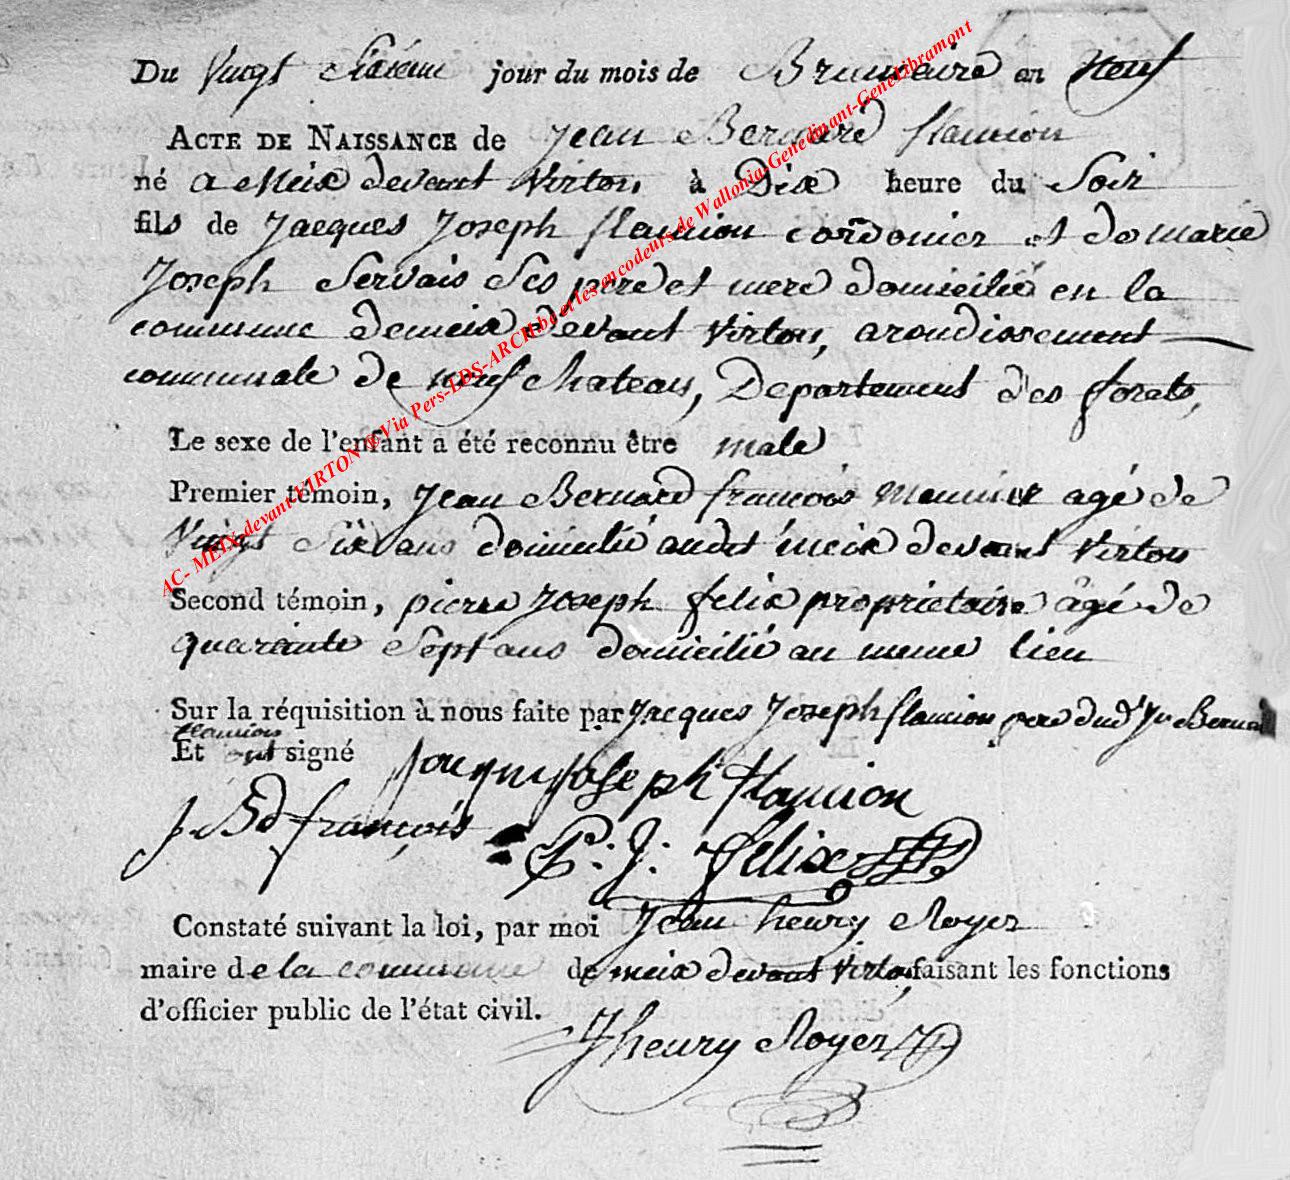 Du Vingt Sixieme jour du mois de Brumaire an Neuf
ACTE DE NAISSANCE de Jean Bernard flamion
né a Meix devant Virton à Dix heure du Soir
fils de Jacques Joseph flamion cordonier et de marie
Joseph Servais Ses pere et mere domicilié en la
commune de meix devant Virton, arondissement
communale de neufchateau, Departement des forets,
Le sexe de l'enfant a été reconnu être male
Premier témoin, Jean Bernard françois Meunier agé de
Vingt Six ans domicilié audit meix devant Virton
Second témoin, pierre Joseph felix proprietaire âgé de
quarante Sept ans domicilié au meme lieu
Sur la réquisition à nous faite par Jacques Joseph flamion pere dud. Jn Bernard
flamion
Et ont signé
Jacque Joseph flamion
J. Bd françois
P. J. felix
Constaté suivant la loi, par moi Jean henry Royer
maire de la commune de meix devant Virton, faisant les fonctions
d'officier public de l'état civil.
J henry Royer
AC- MEIX-devant-VIRTON ®Via Pers-LDS-ARCH.be et les encodeurs de Wallonia-Genedinant-GeneLibramont